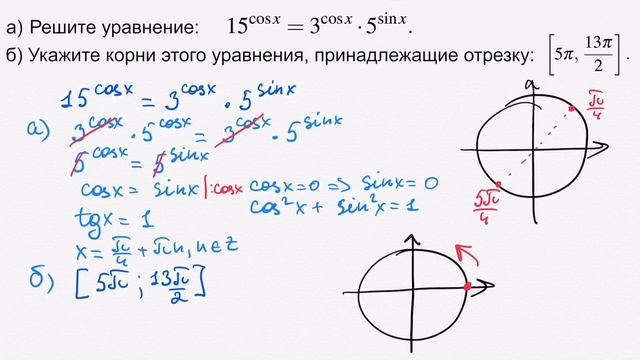 а) Решите уравнение: 15^cos x = 3^cos x · 5^sin x.
б) Укажите корни этого уравнения, принадлежащие отрезку: [5π, 13π/2].
15^cosx = 3^cosx · 5^sinx
а) 3^cosx · 5^cosx = 3^cosx · 5^sinx
5^cosx = 5^sinx
cosx = sinx |:cosx cosx=0 => sinx=0
cos²x + sin²x = 1
tgx = 1
x = π/4 + πn, n∈Z
б) [5π ; 13π/2]
π/4
5π/4